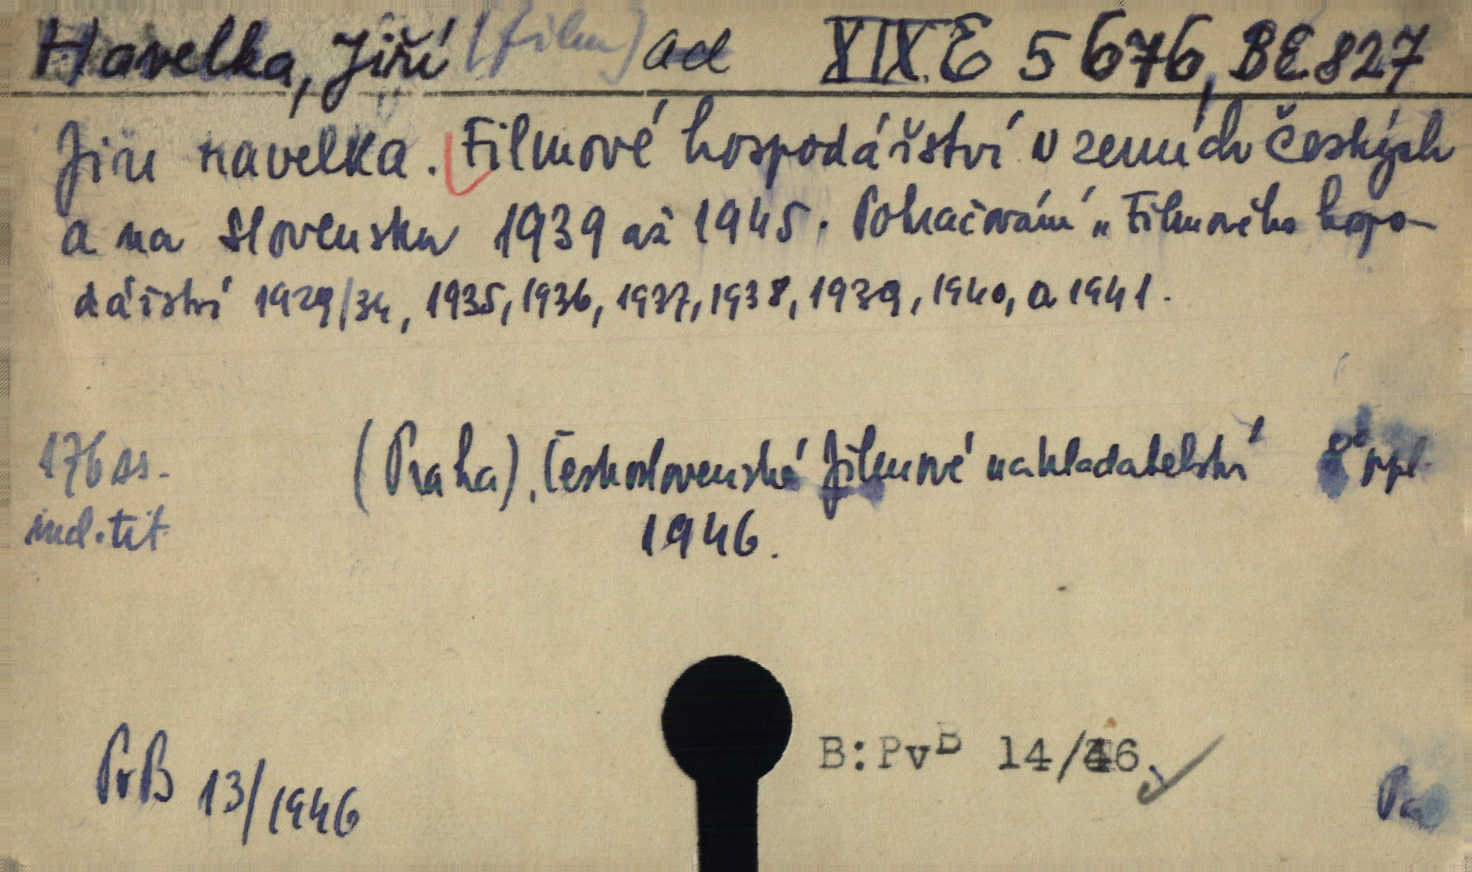 Havelka, Jiří (film) ad XIX E 5676, BE 827
Jiří Havelka. Filmové hospodářství v zemích českých
a na Slovensku 1939 až 1945. Pokračování „Filmového hospo-
dářství 1929/34, 1935, 1936, 1937, 1938, 1939, 1940, a 1941.
176 ss. (Praha), Československé filmové nakladatelství 8° ppl.
incl. tit. 1946.
PvB 13/1946
B:PvB 14/46